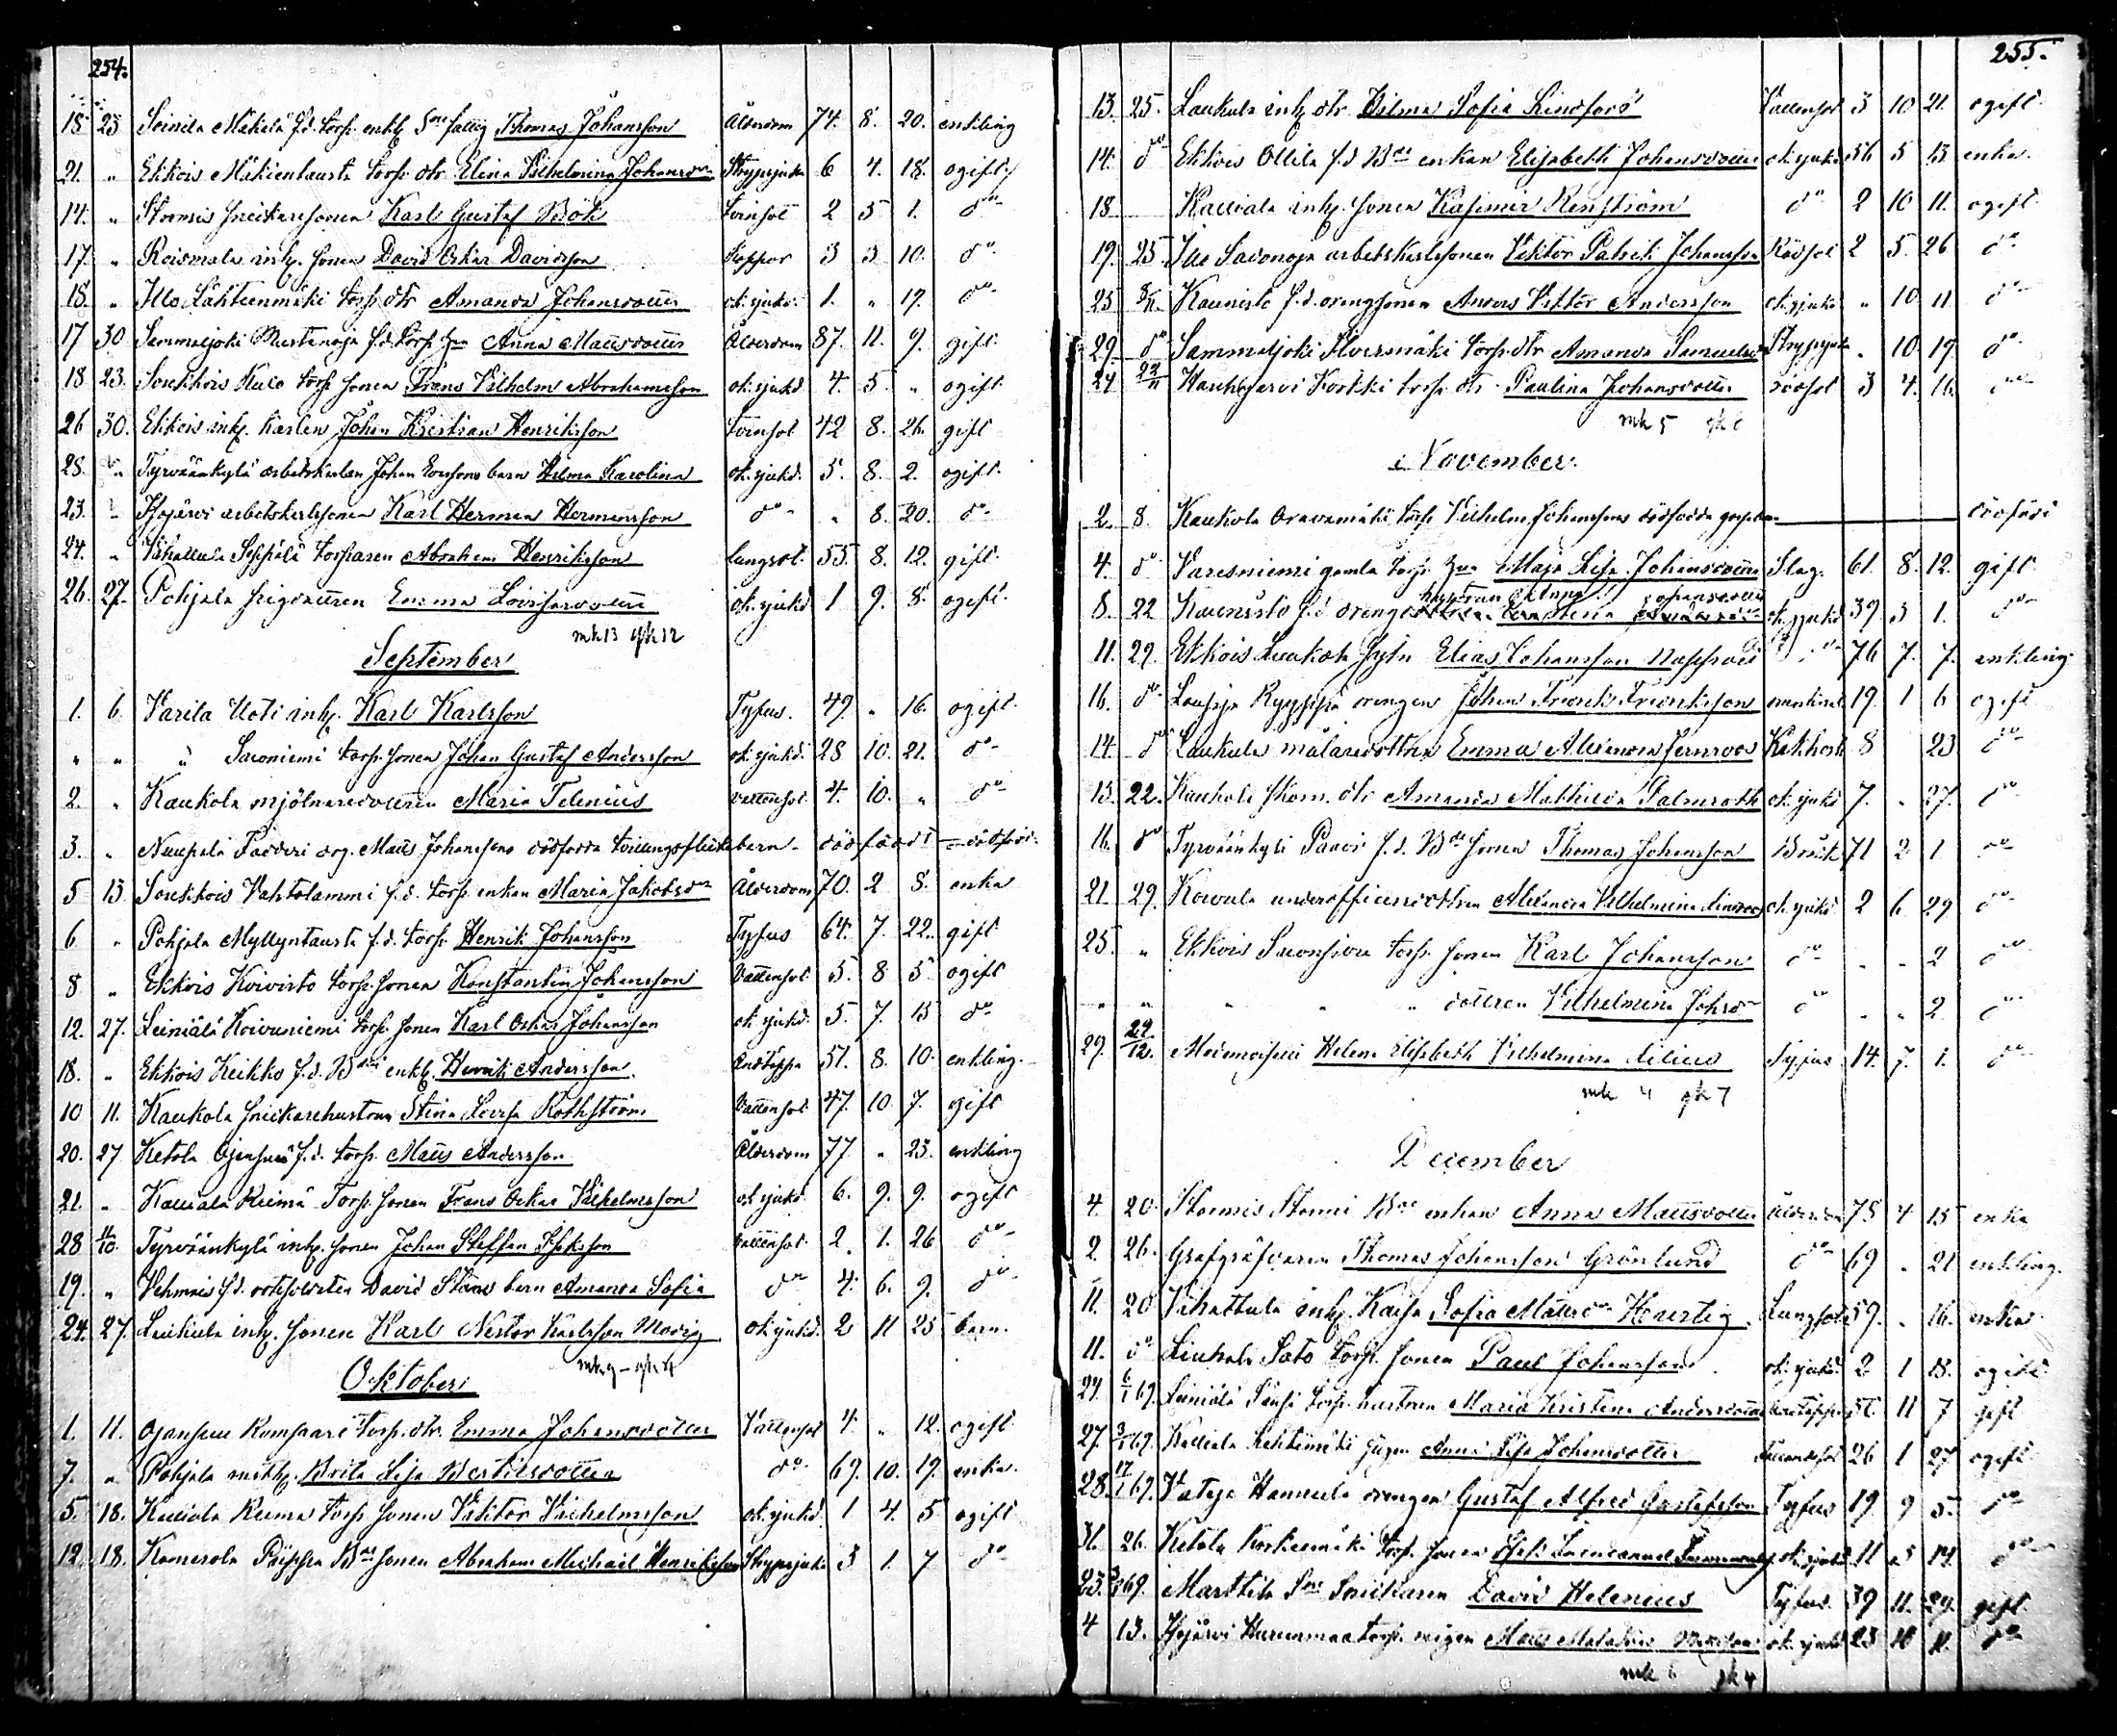 254.
15 23 Seinilä Mäkelä f.d. torp. enkl. Thomas Johansson Ålderdom 74. 8. 20. enkling
21. " Ekkois Mäkientausta torp. dtr Elina Vilhelmina Johansdr Strypsjuka 6 4. 18. ogift
14. " Stormis snickaresonen Karl Gustaf Böök Tvinsot 2 5 1. do
17. " Roismala inh. sonen David Oskar Davidsson Koppor 3 3 10. do
18. " Illo Lähteenmäki torp. dtr Amanda Johansdotter ok. sjukd. 1. " 19. do
17 30 Sammaljoki Mustanoja f.d. torp. hu Anna Mattsdotter Ålderdom 87. 11. 9. gift
18 23. Soukkois Kulo torp. sonen Frans Vilhelm Abrahamsson ok. sjukd 4. 5. " ogift
26 30. Ekkois inh. karlen Johan Kristian Henriksson Tvinsot 42 8. 26. gift
28. " Tyrväänkylä arbetskarlen Johan barn Hilma Karolina ok. sjukd. 5. 8. 2. ogift
23. " arbetskarlssonen Karl Herman Hermansson do " 8. 20. do
24. " Vihattula Seppälä torparen Abraham Henriksson Lungsot 55 8. 12. gift
26. 27. Pohjala pigdottren Emma Lovisadotter ok. sjukd 1 9. 8. ogift
mk 13 qk 12
September
1. 6. Varila Uoti inh. Karl Karlsson Tyfus. 49. " 16. ogift
" " " Savoniemi torp. sonen Johan Gustaf Andersson ok. sjukd. 28 10. 21. do
2. " Kaukola mjölnaredottren Maria Telenius Vattensot 4. 10. " do
3. " Nuupala drg. Matts Johanssons dödfödda tvillingsflickebarn dödfödt
5 13 Soukkois Vahtolammi f.d. torp. enkan Maria Jakobsdr Ålderdom 70. 2 8. enka
6 " Pohjala Myllyntausta f.d. torp. Henrik Johansson Tyfus 64. 7. 22. gift
8 " Ekkois Koivisto torp. sonen Konstantin Johansson Vattensot 5. 8 5. ogift
12. 27. Leiniälä Koivuniemi torp. sonen Karl Oskar Johansson ok. sjukd. 5. 7. 15 do
18. " Ekkois Keikko f.d. enkl. Henrik Andersson Andtäppa 51. 8. 10. enkling.
10 11. Kaukola snickarehustrun Stina Lovisa Rothström Vattensot 47. 10 7. gift
20. 27 Ketola Ojansuu f.d. torp. Matts Andersson Ålderdom 77. " 23. enkling
21. " Kauiala Kiimä Torp. sonen Frans Oskar Vilhelmsson ok. sjukd. 6. 9. 9. ogift
28 4/10. Tyrväänkylä inh. sonen Johan Steffan Isaksson Vattensot 2. 1. 26 do
19. " f.d. David barn Amanda Sofia do 4. 6. 9. do
24. 27. Laukula inh. sonen Karl Nestor Karlsson Modig ok. sjukd. 2 11 25 barn.
mk 9 – qk 4
Oktober
1. 11. Ojansuu Kompaari torp. dtr. Emma Johansdotter Vattensot 4. " 12. ogift
7. " Pohjala inh. Brita Lisa Bertilsdotter do 69. 10. 19. enka.
5. 18. Kauiala Kiima torp. sonen Viktor Vilhelmsson ok. sjukd. 1 4. 5 ogift
12. 18. sonen Abraham Michael Henriksson Strypsjuka 3 1. 7 do
255.
13. 25. Laukula inh. dtr. Hilma Sofia Lindfors Vattensot 3 10 21. ogift
14. do Ekkois Ollila f.d. enkan Elisabeth Johansdotter ok. sjukd 56 5 13 enka.
18 Kauiala inh. sonen Kasimir Renström do 2 10 11. ogift
19. 25. Illo Savonoja arbetskarlssonen Viktor Patrik Johansson Rödsot 2 5. 26 do
25 Kaunisto f.d. drengsonen Anders Viktor Andersson ok. sjukd. " 10 11 do
29. do Sammaljoki torp. dtr Amanda Samuelsdr Strypsjuka " 10 19 do
24 22/11 Houhajärvi torp. dtr. Paulina Johansdotter rödsot 3 4. 16.
mk 5 qk 6
November.
2. 8. Kaukola Oravamäki torp. Vilhelm Johanssons dödfödda gossebarn dödfödd
4. do Varesniemi gamla torp. hu Maja Lisa Johansdotter Slag. 61. 8. 12. gift
8. 22 Kaunisto f.d. drengs hustrun Johansdotter ok. sjukd 39. 3 1. do
11. 29. Ekkois Elias Johansson 76 7. 7. enkling.
16. do drengen Johan Fredrik Fredriksson 19. 1 6 ogift
14. do Laukula målaredottren Emma Alexandra Kikhosta 8 23 do
13. 22. Kaukola skom. dtr Amanda Mathilda Palmroth ok. sjukd 7. " 27. do
16. do Tyrväänkylä Paavi f.d. sonen Thomas Johansson Bråck 71 2 1 do
21. 29. underofficersdottren Alexandra Vilhelmina ok. sjukd 2 6 29 do
25. " Ekkois torp. sonen Karl Johansson do " " 2 do
" " " " " dottren Vilhelmina Johsdr do " " 2 do
29. 29/12. Helena Elisabeth Vilhelmina Tyfus 14. 7. 1. do
mk 4 qk 7
December
4. 20. Stormis Stormi enkan Anna Mattsdotter Ålderdom 75 4 15 enka
2. 26. Grafgräfvaren Thomas Johansson Grönlund do 69 " 21 enkling.
11. 20 Vihattula inh. Kaisa Sofia Mattsdr Lungsot 59. " 16. enka
11. do Liuhala Sato torp. sonen Paul Johansson ok. sjukd. 2 1 13. ogift
24. 6/1 69. Leiniälä torp. hustrun Maria Kristina Andersdotter Andtäppa 51 11 7 gift
27. 3/1 69. Kauiala Lehtimäki pigan Anna Lisa Johansdotter 26 1 27 ogift
28. 17/1 69. Vataja Hannula drengen Gustaf Alfred Gustafsson Tyfus 19 9 5. do
31. 26. Ketola Korkiamäki torp. sonen ok. sjukd 11 5 14. do
25. 69. Marttila snickaren David Helenius Tyfus. 39 11. 29. gift
4 13. torp. mågen Matts ok. sjukd 23 10 11. do
mk 6 qk 4